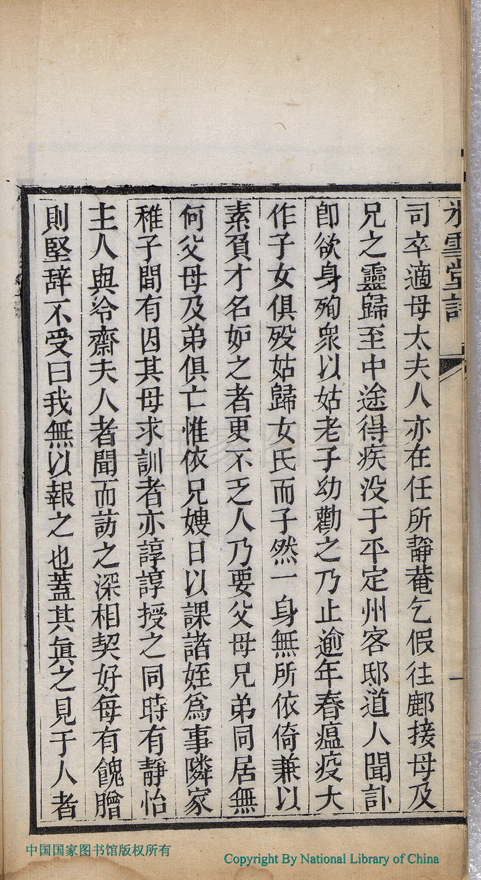 冰雪堂詩
一
司卒適母太夫人亦在任所靜菴乞假往郙接母及
兄之靈歸至中途得疾没于平定州客邸道人聞訃
卽欲身殉衆以姑老子幼勸之乃止逾年春瘟疫大
作子女俱殁姑歸女氏而孑然一身無所依倚兼以
素負才名妒之者更不乏人乃要父母兄弟同居無
何父母及弟俱亡惟依兄嫂日以課諸姪爲事隣家
稚子間有因其母求訓者亦諄諄授之同時有靜怡
主人與谷齋夫人者聞而訪之深相契好每有餽贈
則堅辞不受曰我無以報之也蓋其眞之見于人者
中国国家图书馆版权所有
Copyright By National Library of China